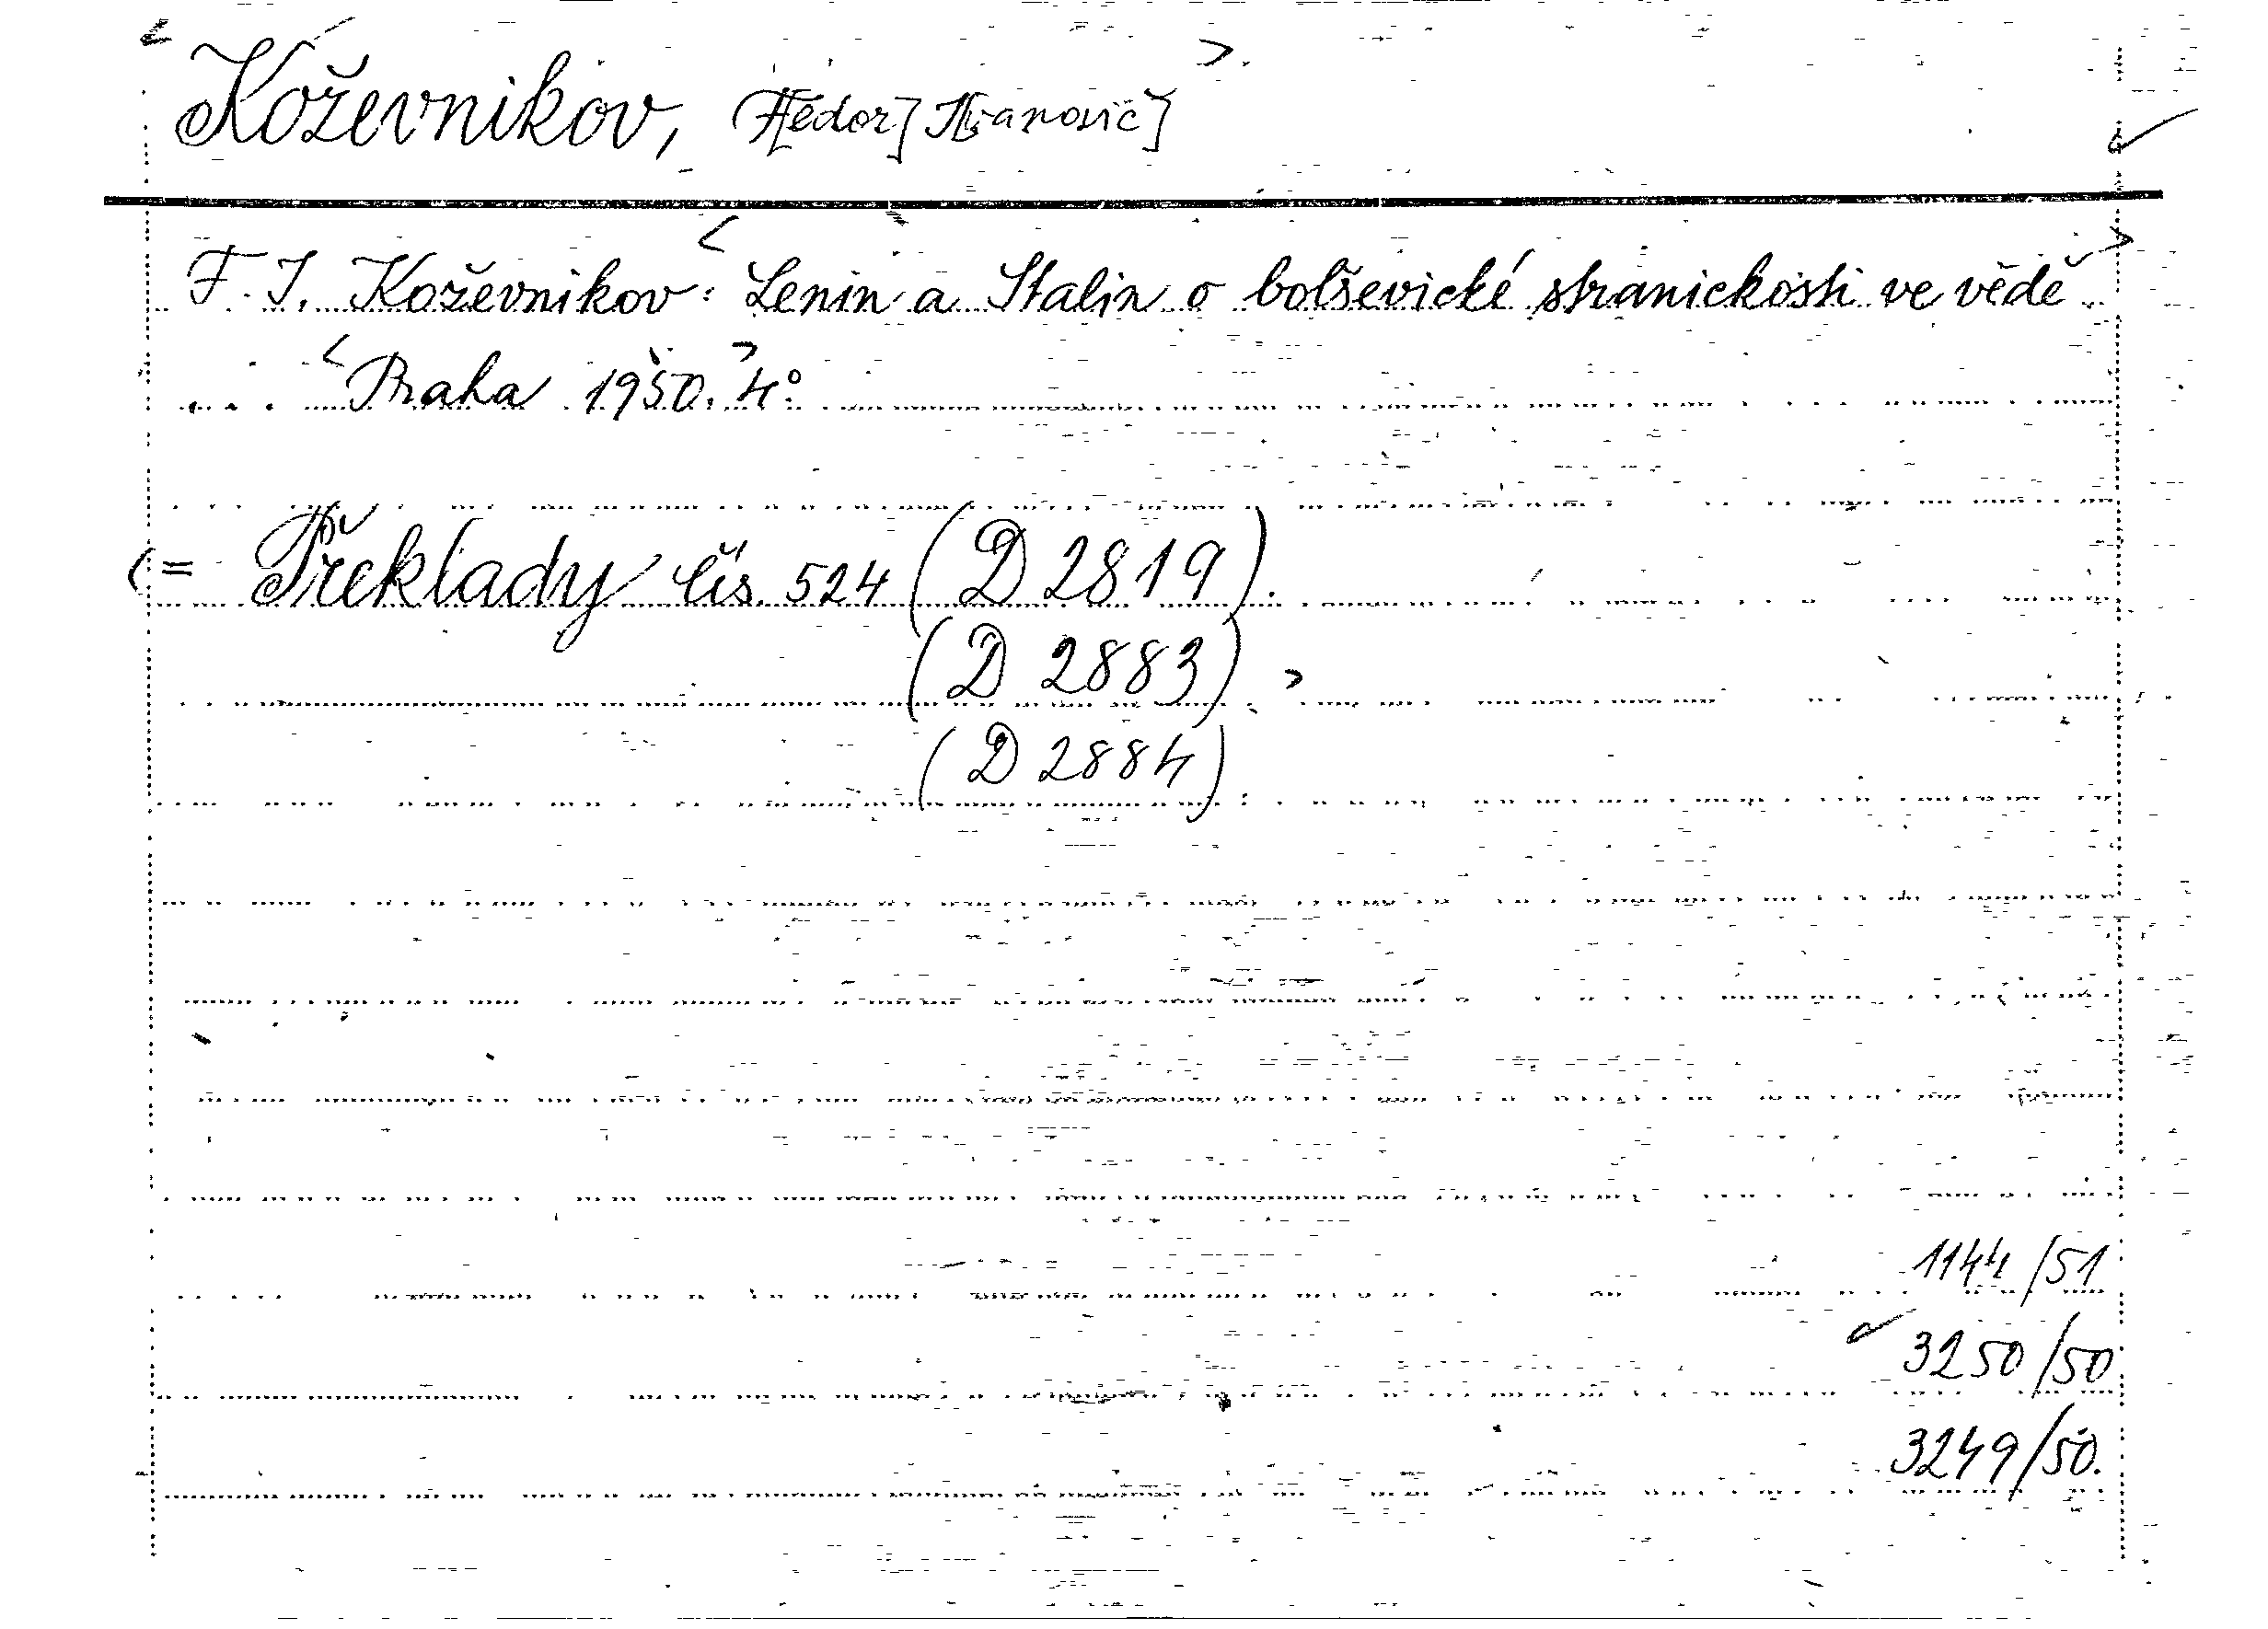 Koževnikov, F[edor] I[vanovič]
F. I. Koževnikov: Lenin a Stalin o bolševické stranickosti ve vědě
... Praha 1950. 4°.
= Překlady čís. 524 (D 2819).
(D 2883).
(D 2884)
1144/51
3250/50
3249/50.